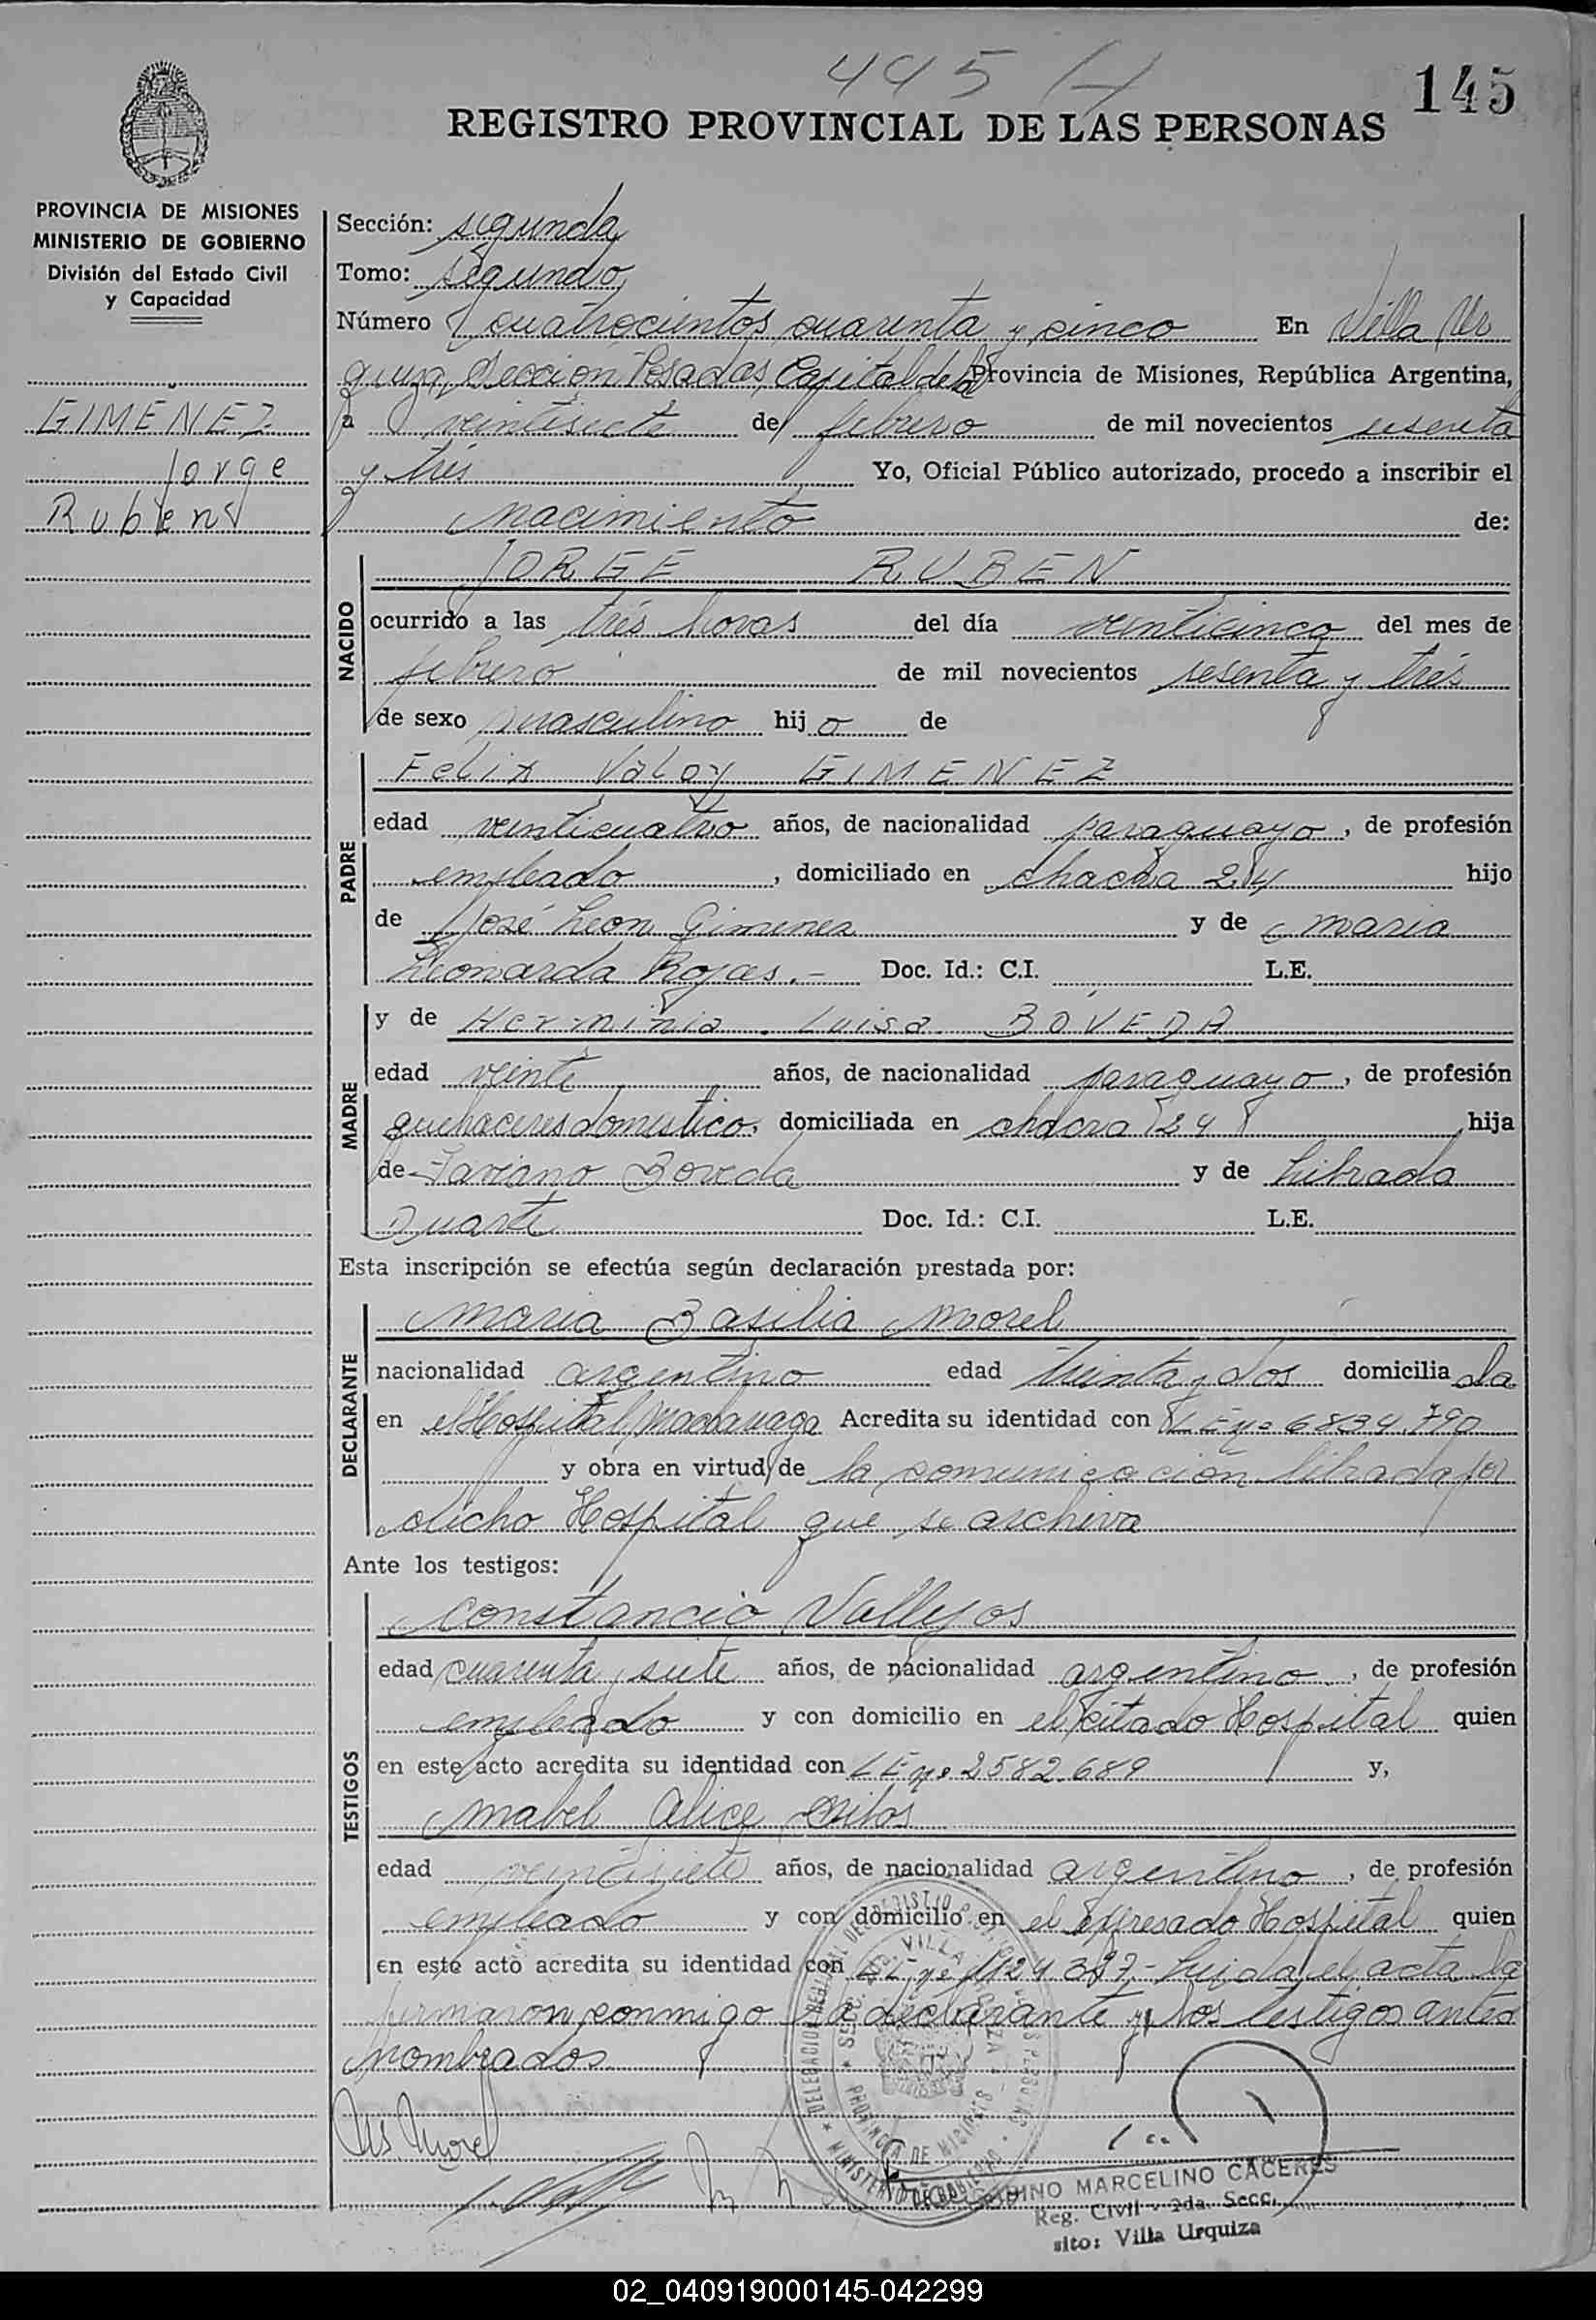 445
145
REGISTRO PROVINCIAL DE LAS PERSONAS
PROVINCIA DE MISIONES
MINISTERIO DE GOBIERNO
División del Estado Civil
y Capacidad
GIMENEZ
Jorge
Ruben
Sección: segunda
Tomo: segundo
Número cuatrocientos cuarenta y cinco En Villa Ur
quiza, Sección Posadas, Capital de la Provincia de Misiones, República Argentina,
a veintisiete de febrero de mil novecientos sesenta
y tres Yo, Oficial Público autorizado, procedo a inscribir el
nacimiento de:
NACIDO
JORGE RUBEN
ocurrido a las trés horas del día veinticinco del mes de
febrero de mil novecientos sesenta y trés
de sexo masculino hijo de
PADRE
Felix Valoy GIMENEZ
edad veinticuatro años, de nacionalidad paraguayo, de profesión
empleado, domiciliado en chacra 24 hijo
de José Leon Gimenez y de Maria
Leonarda Rojas.- Doc. Id.: C.I. L.E.
MADRE
y de Herminia Luisa BOVEDA
edad veinte años, de nacionalidad paraguayo, de profesión
quehaceres domestico, domiciliada en chacra 24 hija
de Faviano Boveda y de Librada
Duarte Doc. Id.: C.I. L.E.
Esta inscripción se efectúa según declaración prestada por:
DECLARANTE
Maria Basilia Morel
nacionalidad argentino edad treinta y dos domiciliada
en el Hospital Madariaga Acredita su identidad con LE nº 6834.790
y obra en virtud de la comunicación librada por
dicho Hospital que se archiva
Ante los testigos:
TESTIGOS
Constancio Vallejos
edad cuarenta y siete años, de nacionalidad argentino, de profesión
empleado y con domicilio en el citado Hospital quien
en este acto acredita su identidad con LE nº 2582.689 y,
Mabel Alice
edad veintisiete años, de nacionalidad argentino, de profesión
empleado y con domicilio en el expresado Hospital quien
en este acto acredita su identidad con LE nº Leida el acta la
firmaron conmigo la declarante y los testigos antes
nombrados
Morel
MARCELINO CACERES
Reg. Civil - 2da. Secc.
sito: Villa Urquiza
02_040919000145-042299